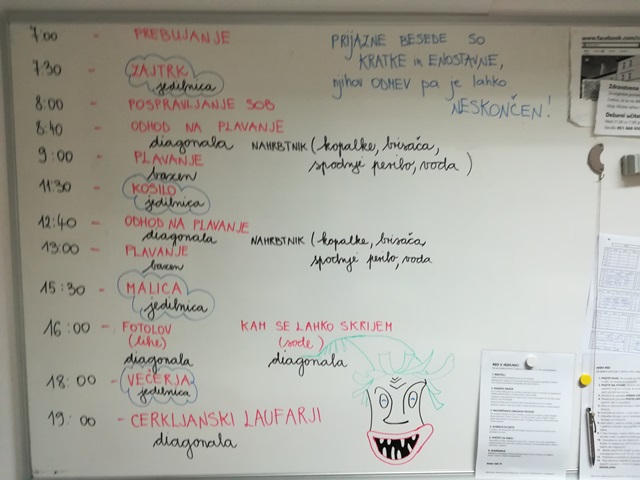 7:00 - PREBUJANJE
7:30 - ZAJTRK
jedilnica
8:00 - POSPRAVLJANJE SOB
8:40 - ODHOD NA PLAVANJE
diagonala NAHRBTNIK (kopalke, brisača,
9:00 - PLAVANJE spodnje perilo, voda)
bazen
11:30 - KOSILO
jedilnica
12:40 - ODHOD NA PLAVANJE
diagonala NAHRBTNIK (kopalke, brisača,
13:00 - PLAVANJE spodnje perilo, voda
bazen
15:30 - MALICA
jedilnica
16:00 - FOTOLOV KAM SE LAHKO SKRIJEM
(lihe) (sode)
diagonala diagonala
18:00 - VEČERJA
jedilnica
19:00 - CERKLJANSKI LAUFARJI
diagonala
PRIJAZNE BESEDE SO
KRATKE in ENOSTAVNE,
njihov ODMEV pa je lahko
NESKONČEN!
www.facebook.com
Zdravstvena